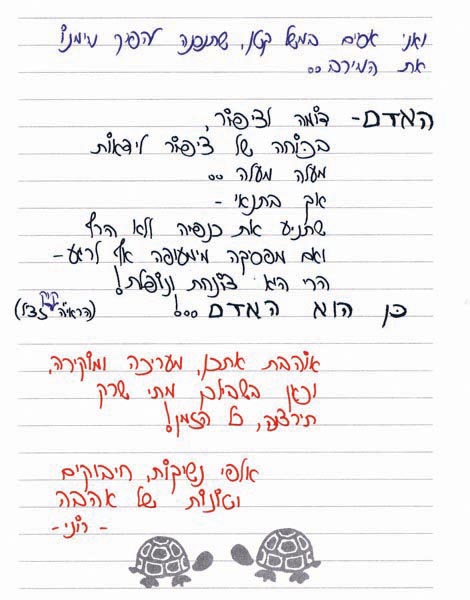 ואני אסיים במשל קטן, שתנסנה להפיק מימנו
את המירב..
האדם - דומה לציפור,
בכוחה של ציפור לידאות
מעלה מעלה..
אך בתנאי -
שתניע את כנפיה ללא הרף
ואם מפסקה מימעופה אף לרגע -
הרי היא צונחת ונופלת!
כן הוא האדם...! (הראי"ה זצ"ל)
אוהבת אתכן, מעריכה ומוקירה,
וכאן בשבילכן מתי שרק
תירצנה, כל הזמן!
אלפי נשיקות, חיבוקים
וטונות של אהבה
- רוני -